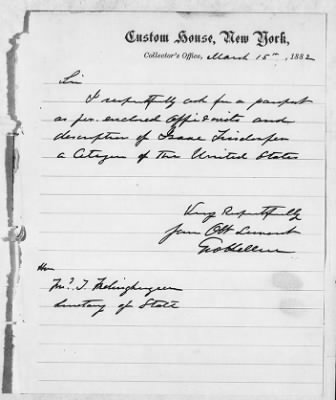 Custom House, New York,
Collector's Office, March 15th, 1882
Sir
I respectfully ask for a passport
as per enclosed affidavits and
description of Isaac
a Citizen of the United States
Very Respectfully
Your Obt Servant
Hon
Fredk T. Frelinghuysen
Secretary of State